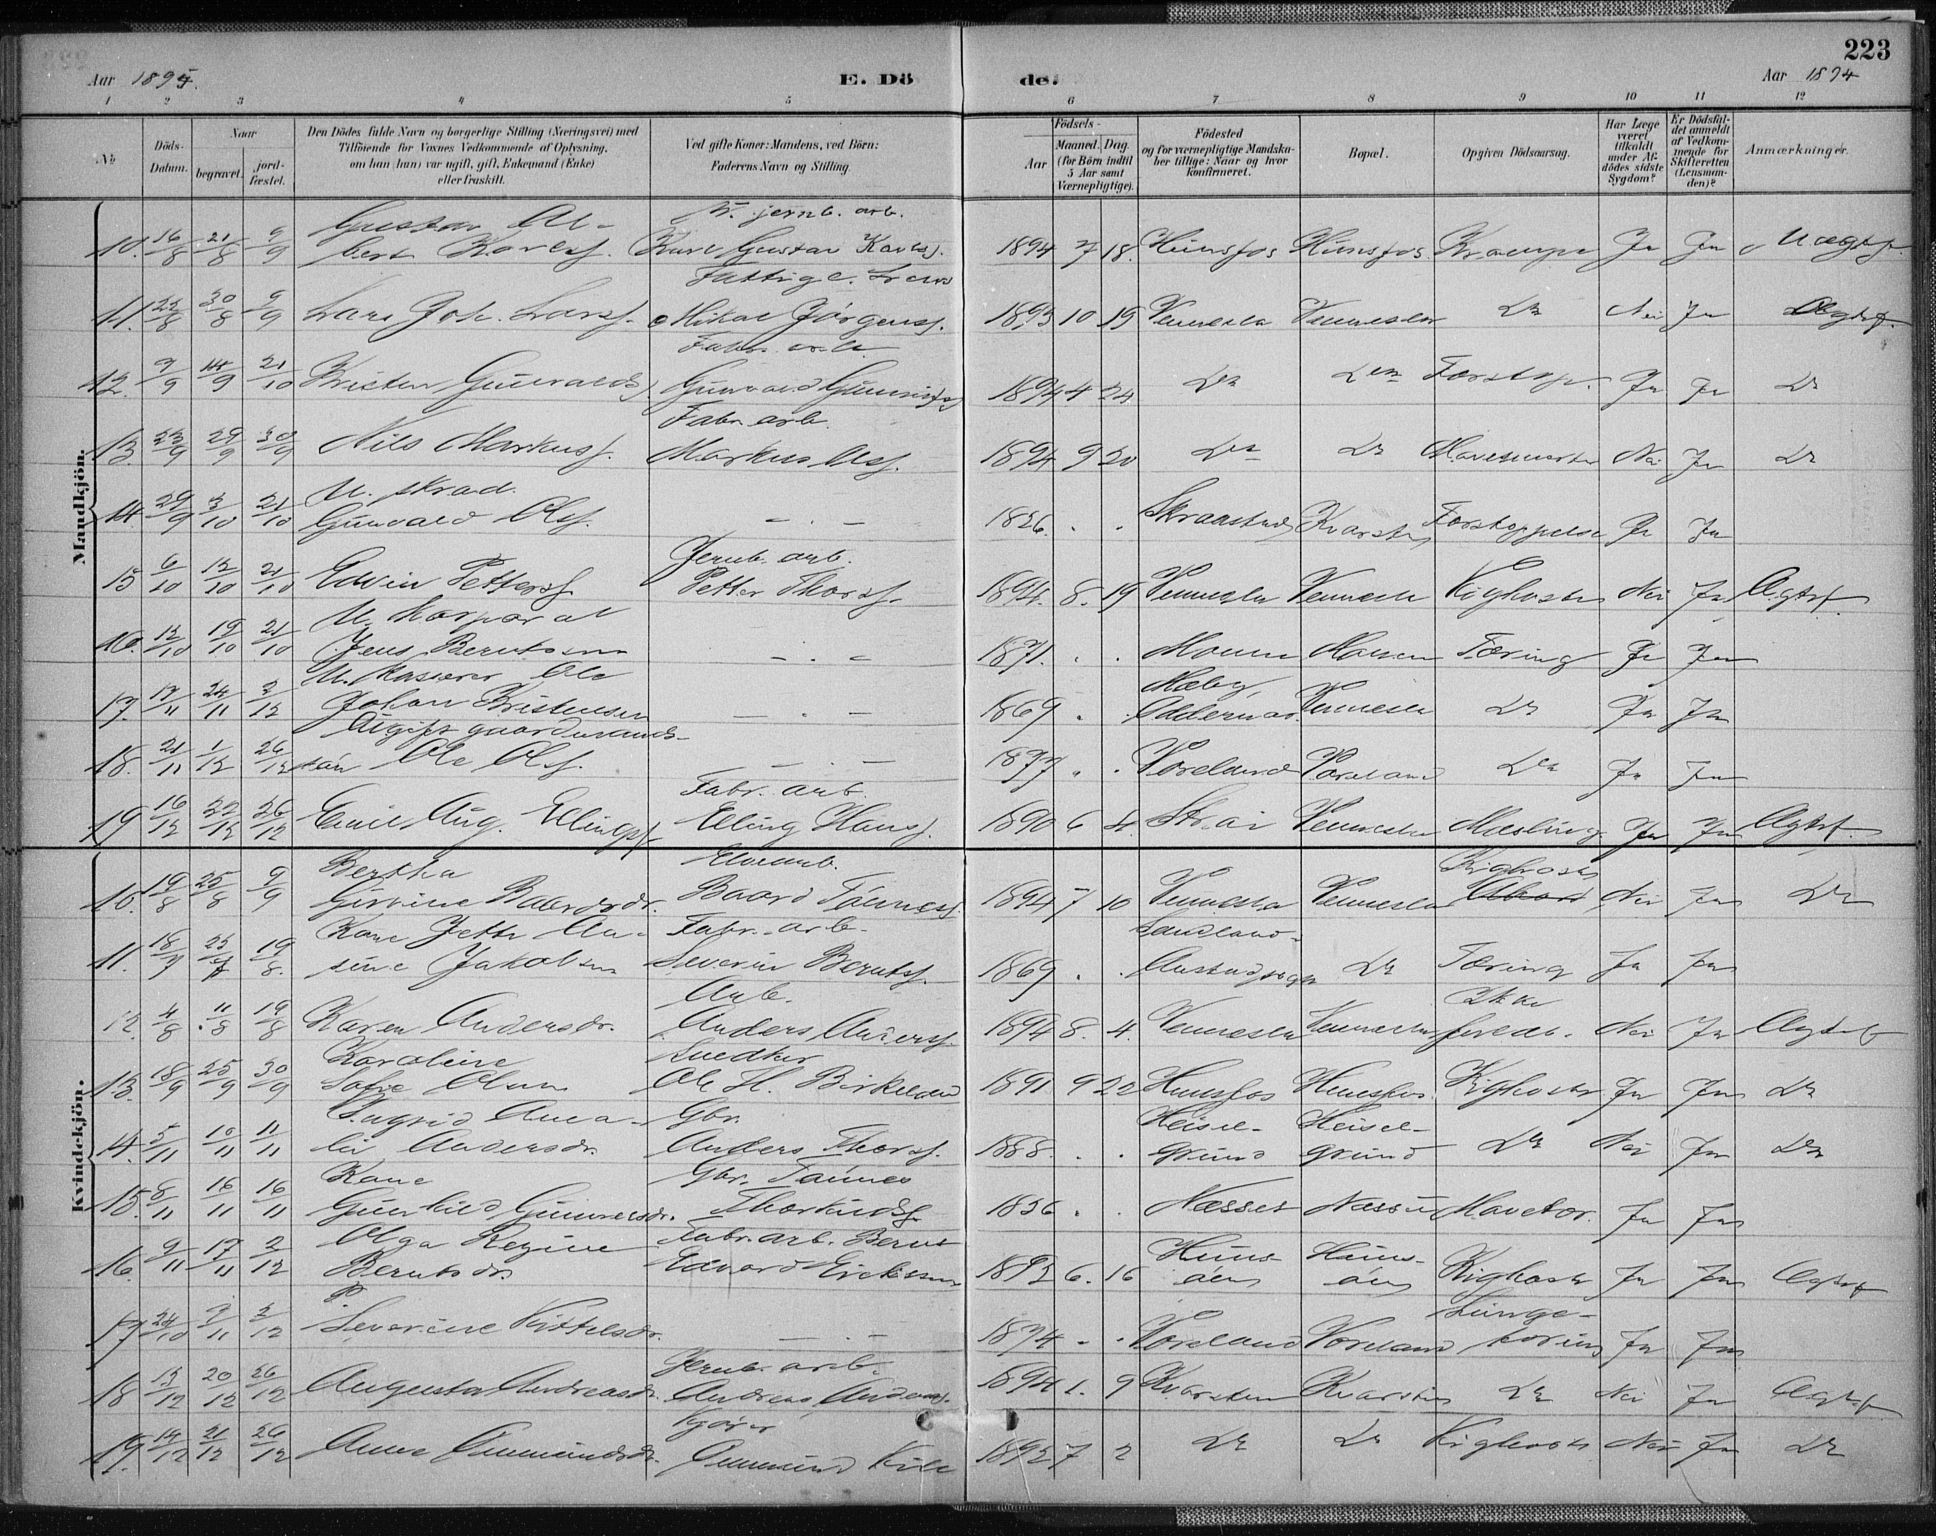 223
Aar 1894. E. Dö de. Aar 1894
1 2 3 4 5 6 7 8 9 10 11 12
No
Döds-Datum.
Naar
begravet.
jord-fæstet.
Den Dödes fulde Navn og borgerlige Stilling (Næringsvei) med
Tilföiende for Voxnes Vedkommende af Oplysning,
om han (hun) var ugift, gift, Enkemand (Enke)
eller fraskilt.
Ved gifte Koner: Mandens, ved Börn:
Faderens Navn og Stilling.
Födsels-
Aar
Maaned. Dag.
(for Börn indtil
5 Aar samt
Værnepligtige).
Födested
og for værnepligtige Mandska-
ber tillige: Naar og hvor
konfirmeret.
Bopæl.
Opgiven Dödsaarsag.
Har Læge
været
tilkaldt
under Af-
dödes sidste
Sygdom?
Er Dödsfal-
det anmeldt
af Vedkom-
mende for
Skifteretten
(Lensman-
den)?
Anmærkninger.
Mandkjön.
Gustav Al- jernb. arb.
10. 16/8 21/8 9/9 bert Karlsf. Karl Gustav Karlsf. 1894 7 18. Hunsfos Hunsfos Krampe Ja Ja Uægtf.
11. 30/8 9/9 Lars Joh. Larsf. Mikal Jörgensf. 1893 10 19 Vennesla Vennesla Do Nei Ja Ægtef.
Fabr. arb.
12. 7/9 14/9 21/10 Kristen Gunvalds. Gunvald 1894 4 24 Do Do Ja Ja Do
Fabr. arb.
13. 23/9 29/9 30/9 Nils Markusf. Markus Olsf. 1894 9 20 Do Do Nei Ja Do
U.
14. 29/9 3/10 21/10 Gunvald Olsf. - . - 1826 . . Skraastad Forstoppelse Ja Ja
Jernb. arb.
15 6/10 12/10 21/10 Edvin Pettersf. Petter Thorsf. 1894. 8. 19 Vennesla Vennesla Kighoste Nei Ja Ægtef.
U. Korporal
16. 12/10 19/10 21/10 Jens Berntsen - . - 1871. . . Moseen Tæring Ja Ja
U. Kasserer Ole
17. 17/11 24/11 2/12 Johan Kristensen - . - 1869 . . Oddernes. Vennesla Do Ja Ja
Ugift gaardmands-
18. 21/11 1/12 26/12 sön Ole Olsf. - . - 1877 . . Voreland Voreland Do Ja Ja
Fabr. arb.
19 16/12 22/12 26/12 Emil Aug. Ellingsf. Elling Hansf. 1890 6 4. Strai Vennesla Mæslinge Ja Ja Ægtef.
Kvindekjön.
Bertha Kighoste
10. 19/8 25/8 9/9 Baardsdr. Baard Tönnesf. 1894 7 10 Vennesla Vennesla Nei Ja Do
Kone Jette An- Fabr. arb.
11. 18/7 19/8. sine Jakobsen Severin Berntsf. 1869 . . Do Tæring Ja Ja
Arb. Ikke
12. 4/8 11/8 19/8 Karen Andersdr. Anders Andersf. 1894 8. 4. Vennesla Vennesla Nei Ja Ægtef
Karoline Snedker
13. 18/9 25/9 30/9 Sofie Olsen Ole H. Birkeland 1891 9 22 Hunsfos Hunsfos. Kighoste Ja Ja Do
Ingrid Ama- Gbr. Heisel- Heisel-
14. 5/11 10/11 11/11 lie Andersdr. Anders Thorsf. 1888. . . grund grund Do Nei Ja Do
Kone Gbr. Tönnes
15. 8/11 16/11 16/11 Gunhild Gunnersdr. 1836 . . Næsset Mavekr. Ja Ja
Olga Regine Fabr. arb. Bernt Huns- Huns-
16. 9/11 17/11 2/12 Berntsdr. Edvard Eriksen 1892 6. 16 öen öen Kighoste Ja Ja Ægtef
P. Lunge-
17 24/10 2/11 2/12 Severine Kittelsdr. - . - 1874 . . Voreland Voreland tæring Ja Ja
Jernb. arb.
18 13/12 20/12 26/12 Augusta Andreasdr. Andreas 1894 1. 9 Kvarsten Kvarsten Do Nei Ja Ægtef
19. 14/12 21/12 26/12 Anne Ommundsdr. Ommund Kile 1892 7 2 Do Do Kighoste Nei Ja Do